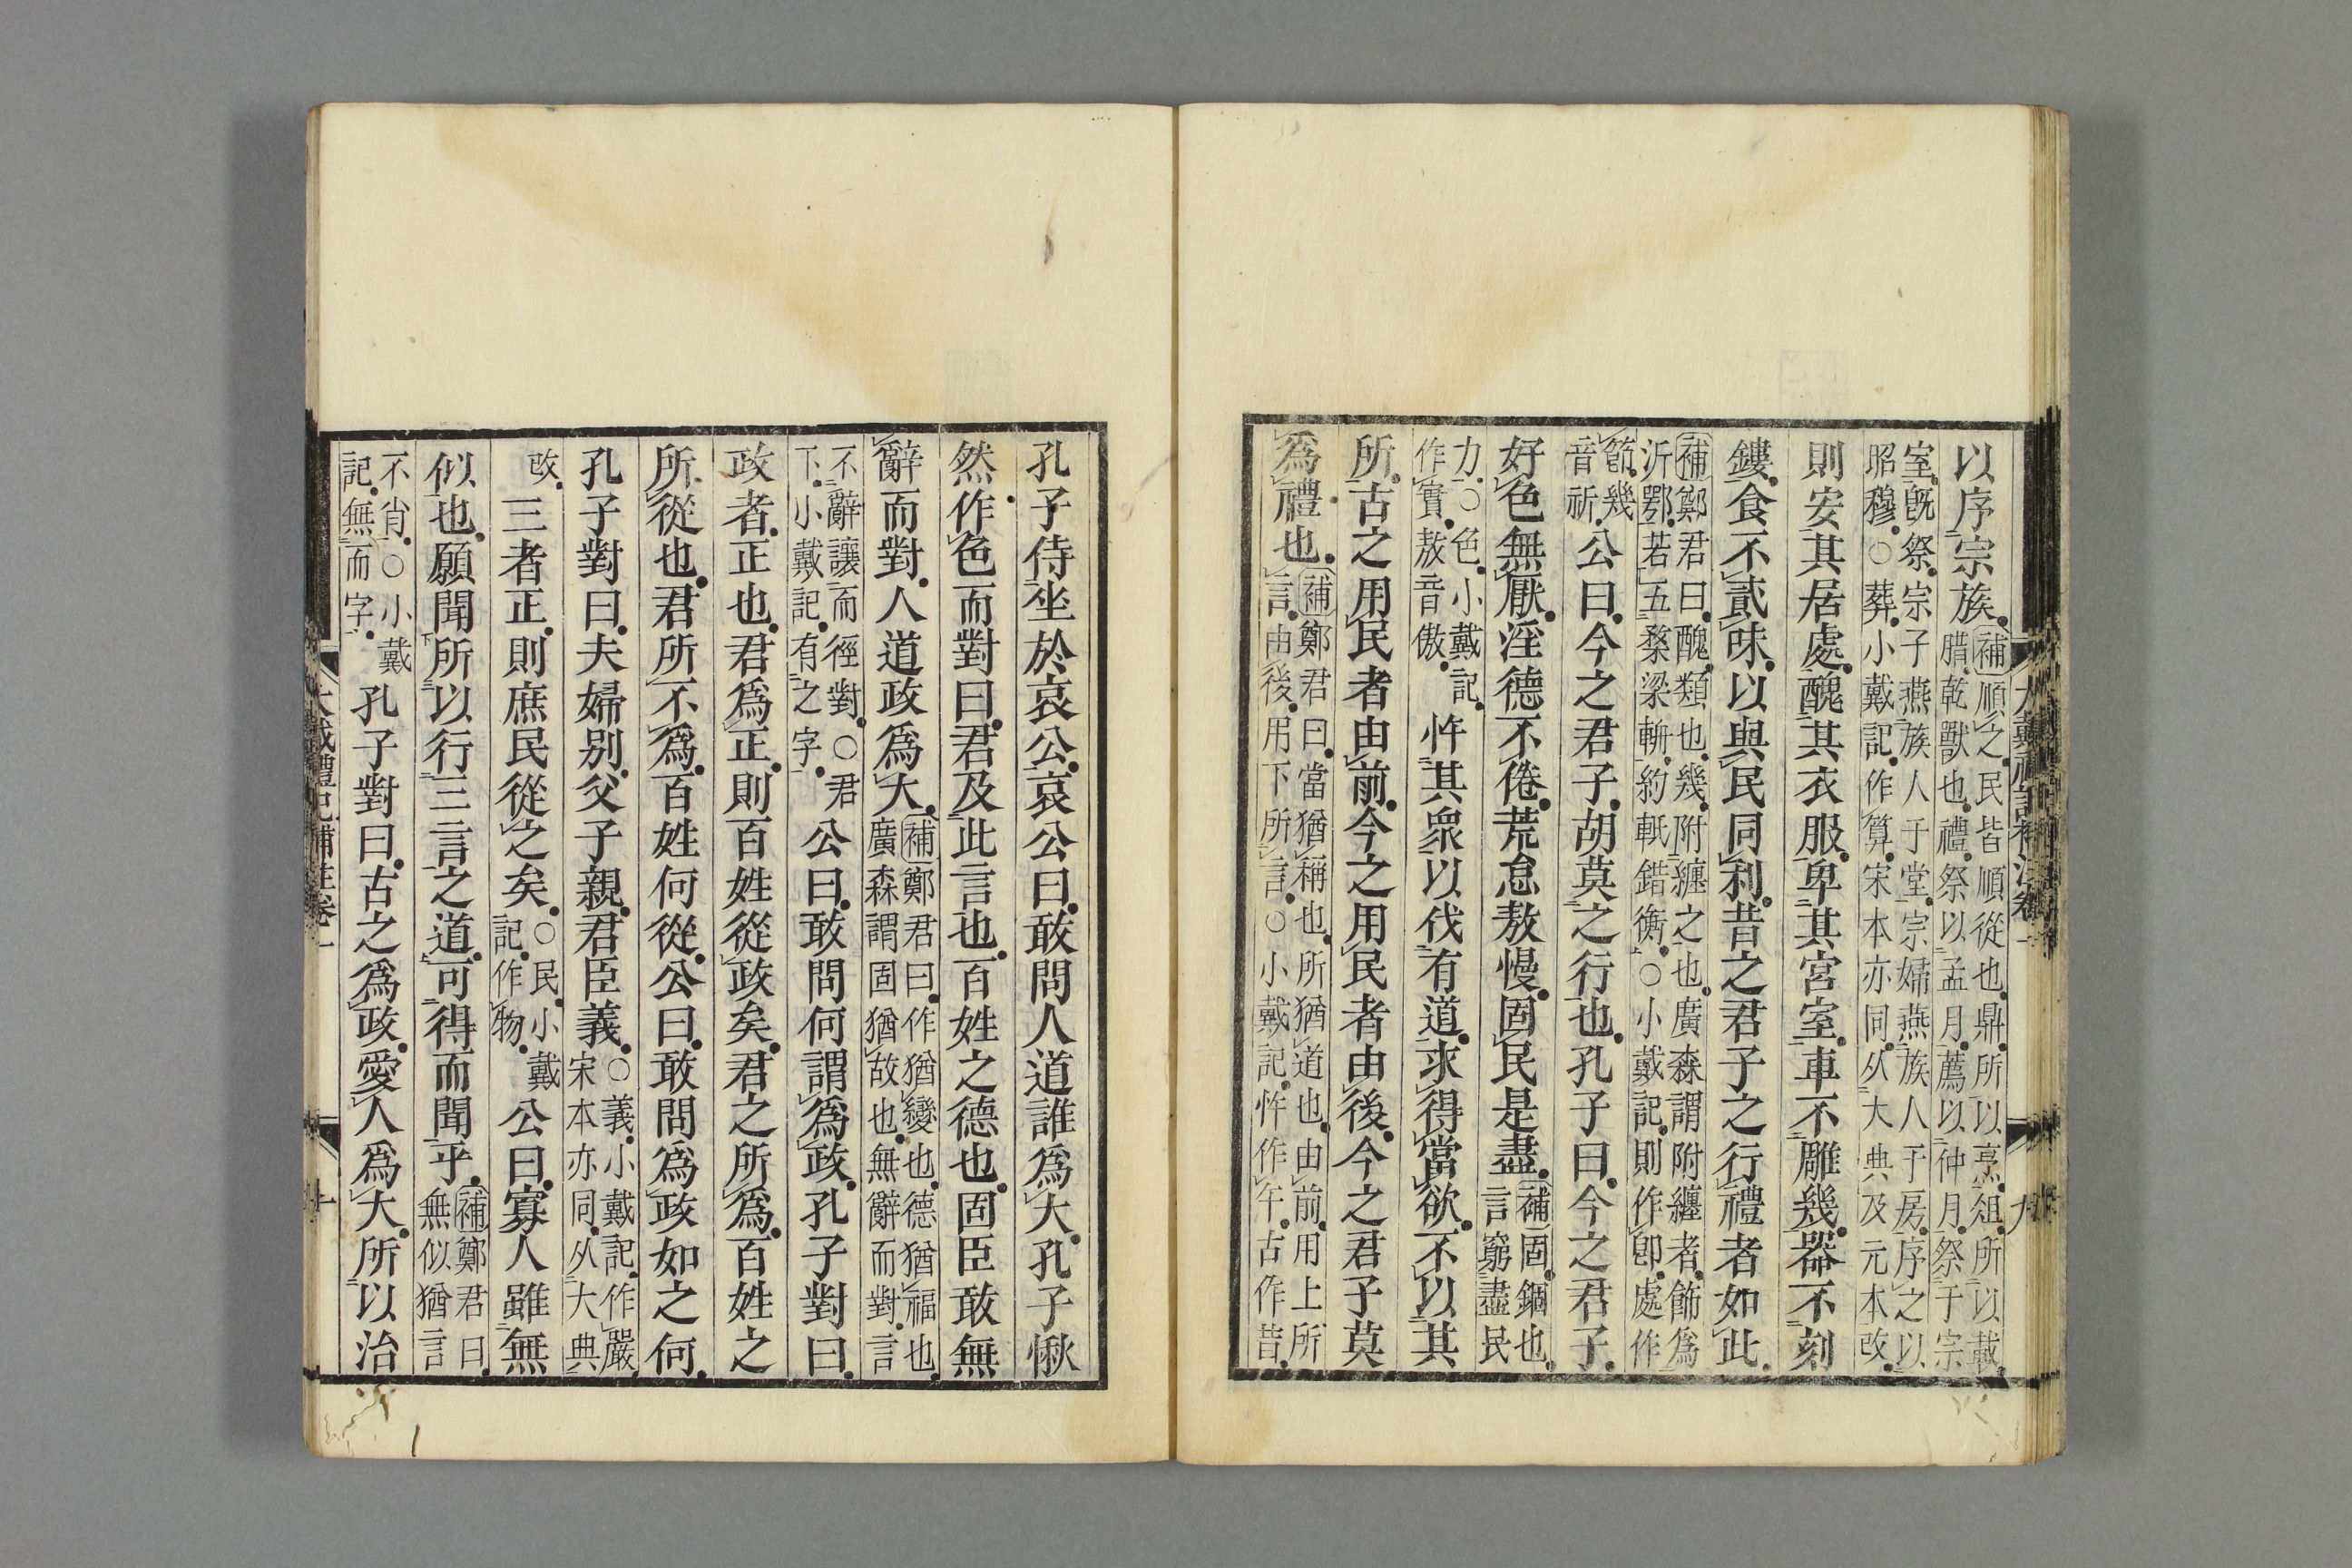 以序宗族補順之民皆順從也鼎所以烹俎所以載
腊乾獸也禮祭以孟月薦以仲月祭于宗
室旣祭宗子燕族人于堂宗婦燕族人于房序之以
昭穆○葬小戴記作算宋本亦同从大典及元本改
則安其居處醜其衣服卑其宮室車不雕幾器不刻
鏤食不貳味以與民同利昔之君子之行禮者如此
補鄭君曰醜類也幾附纏之也廣森謂附纏者飾爲
沂鄂若五楘梁輈約軝錯衡○小戴記則作卽處作
節幾
音祈公曰今之君子胡莫之行也孔子曰今之君子
好色無厭淫德不倦荒怠敖慢固民是盡補固錮也
言窮盡民
力○色小戴記
作實敖音傲忤其衆以伐有道求得當欲不以其
所古之用民者由前今之用民者由後今之君子莫
爲禮也補鄭君曰當猶稱也所猶道也由前用上所
言由後用下所言○小戴記忤作午古作昔
大戴禮記補注卷一 九
孔子侍坐於哀公哀公曰敢問人道誰爲大孔子愀
然作色而對曰君及此言也百姓之德也固臣敢無
辭而對人道政爲大補鄭君曰作猶變也德猶福也
廣森謂固猶故也無辭而對言
不辭讓而徑對○君
下小戴記有之字公曰敢問何謂爲政孔子對曰
政者正也君爲正則百姓從政矣君之所爲百姓之
所從也君所不爲百姓何從公曰敢問爲政如之何
孔子對曰夫婦别父子親君臣義○義小戴記作嚴
宋本亦同从大典
改三者正則庶民從之矣○民小戴
記作物公曰寡人雖無
似也願聞所以行三言之道可得而聞乎補鄭君曰
無似猶言
不肖○小戴
記無而字孔子對曰古之爲政愛人爲大所以治
大戴禮記補注卷一 十